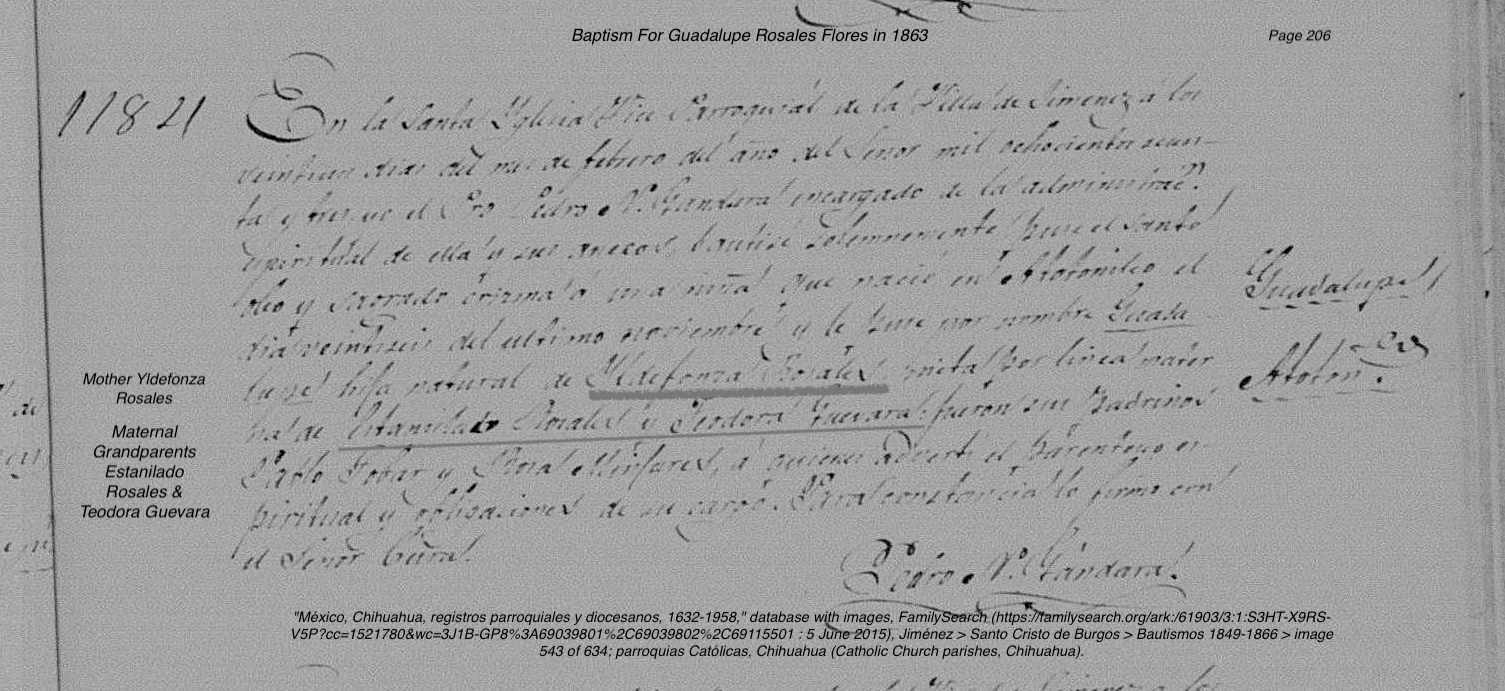 Baptism For Guadalupe Rosales Flores in 1863
Page 206
1184
En la Santa Yglesia Vice Parroquial de la Villa de Jimenez á los
veintiun dias del mes de febrero del año del Señor mil ochocientos secen-
ta y tres yo el Pro Pedro N. Gandara encargado de la administrac.n
espiritual de ella y sus anecos, bautisé solemnemente puse el santo
oleo y sagrado crisma á una niña que nació en Atotonilco el
dia veintiseis del ultimo noviembre y le puse por nombre Guada
lupe hija natural de Yldefonza Rosales nieta por linea mater
na de Estanilado Rosales y Teodora Guevara fueron sus padrinos
Pablo Tobar y Rosa Minjares, á quienes advertí el parentesco es-
piritual y obligaciones de su cargo. Para constancia lo firmo con
el Señor Cura.
Pedro N. Gandara.
Guadalupe
Atoton.co
Mother Yldefonza
Rosales
Maternal
Grandparents
Estanilado
Rosales &
Teodora Guevara
"México, Chihuahua, registros parroquiales y diocesanos, 1632-1958," database with images, FamilySearch (https://familysearch.org/ark:/61903/3:1:S3HT-X9RS-
V5P?cc=1521780&wc=3J1B-GP8%3A69039801%2C69039802%2C69115501 : 5 June 2015), Jiménez > Santo Cristo de Burgos > Bautismos 1849-1866 > image
543 of 634; parroquias Católicas, Chihuahua (Catholic Church parishes, Chihuahua).